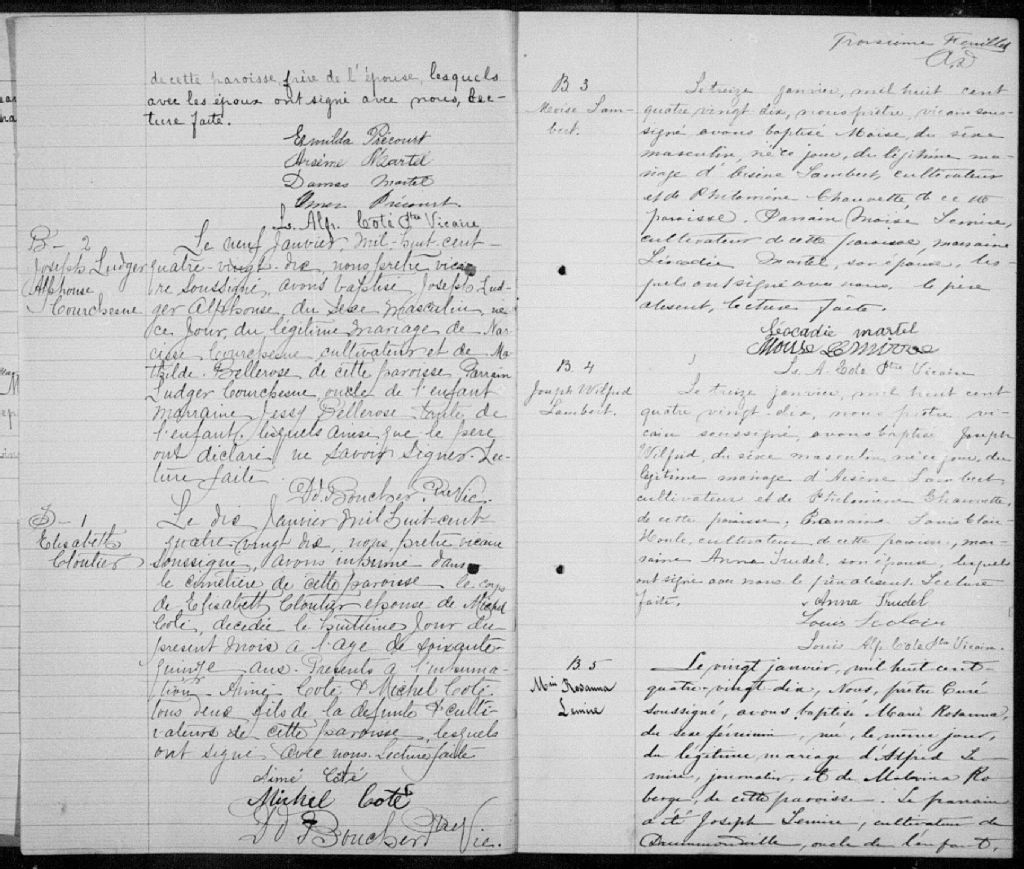 de cette paroisse, frère de l'épouse, lesquels
avec les époux ont signé avec nous, Lec-
ture faite.
Exmilda Précourt
Arsène Martel
Damas Martel
Omer Précourt
Ls. Alf. Coté Ptre Vicaire
B - 2
Joseph Ludger
Alphonse
Courchesne
Le neuf Janvier mil-huit-cent-
quatre-vingt-dix nous prêtre vicai
re soussigné, avons baptisé Joseph Lud-
ger Alphonse, du sexe masculin né
ce jour, du légitime mariage de Nar
cisse Courchesne cultivateur et de Ma
thilde Bellerose de cette paroisse Parrain
Ludger Courchesne oncle de l'enfant
marraine Jessy Bellerose tante de
l'enfant, lesquels ainsi que le père
ont déclaré ne savoir signer. Lec-
ture faite
Jd. Boucher Ptre Vic.
S - 1
Elisabeth
Cloutier
Le dix Janvier mil huit-cent
quatre-vingt dix, nous, prêtre vicaire
soussigné, avons inhumé dans
le cimetière de cette paroisse le corps
de Elisabeth Cloutier épouse de Michel
Coté, décédée le huitième jour du
présent mois à l'âge de soixante-
quinze ans. Présents à l'inhuma-
tion Aimé Coté & Michel Coté
tous deux fils de la defunte & culti-
vateurs de cette paroisse, lesquels
ont signé avec nous. Lecture faite
Aimé Coté
Michel Coté
Jd Boucher Ptre Vic.
Troisième Feuillet
B 3
Moise Lam-
bert.
Le treize janvier, mil huit cent
quatre vingt dix, nous prêtre, vicaire sous-
signé avons baptisé Moise, du sexe
masculin, né ce jour, du légitime ma-
riage d'Arsène Lambert, cultivateur
et de Philomène Chauvette de cette
paroisse. Parrain Moise Lemire,
cultivateur de cette paroisse, marraine
Léocadie Martel, son épouse, les-
quels ont signé avec nous, le père
absent, lecture faite.
Léocadie martel
Moise Lemire
Ls A. Cote Ptre Vicaire
B. 4
Joseph Wilfrid
Lambert.
Le treize janvier, mil huit cent
quatre vingt-dix, nous prêtre vi-
caire soussigné, avons baptisé Joseph
Wilfrid, du sexe masculin, né ce jour, du
légitime mariage d'Arsène Lambert,
cultivateur et de Philomène Chauvette,
de cette paroisse. Parrain Louis Clair
Houle, cultivateur de cette paroisse, mar-
raine Anna Trudel, son épouse, lesquels
ont signé avec nous le père absent. Lecture
faite.
Anna Trudel
Louis
Louis Alp. Cote Ptre Vicaire.
B 5
Mie Rosanna
Lemire
Le vingt janvier, mil huit cent-
quatre-vingt-dix, Nous, prêtre Curé
soussigné, avons baptisé Marie Rosanna,
du sexe féminin, née, le même jour,
du légitime mariage d'Alfred Le-
mire, journalier, et de Malvina Ro
berge, de cette paroisse. Le parrain
a été Joseph Lemire, cultivateur de
Drummondville, oncle de l'enfant,